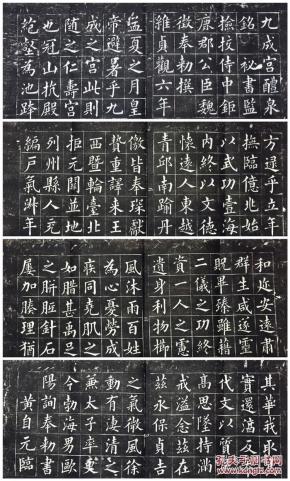 九成宮醴泉
銘 秘書監
檢校侍中鉅
鹿郡公臣魏
徵奉勅撰
維貞觀六年
孟夏之月皇
帝避暑乎九
成之宮此則
随之仁壽宮
也冠山抗殿
絶壑為池跨
方逮乎立年
撫臨億兆始
以武功壹海
內終以文德
懷遠人東越
青丘南踰丹
儌皆奉琛獻
贄重譯来王
西暨輪臺北
拒元闕並地
列州縣人充
編戶氣淑年
和迩安遠肅
群生咸遂靈
貺畢臻雖藉
二儀之功終
資一人之慮
遺身利物櫛
風沐雨百姓
為心憂勞成
疾同堯肌之
如腊甚禹足
之胼胝針石
屢加腠理猶
其華我取其
實還淳反本
代文以質居
高思墜持滿
戒溢念茲在
茲永保貞吉
之氣微風徐
動有淒清之
兼太子率更
令勃海男歐
陽詢奉勅書
黄自元臨